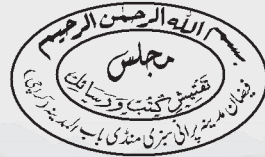 بسم الله الرحمٰن الرحیم
مجلس
تفتیش کتب و رسائل
فیضان مدینہ پرانی سبزی منڈی باب المدینہ (کراچی)